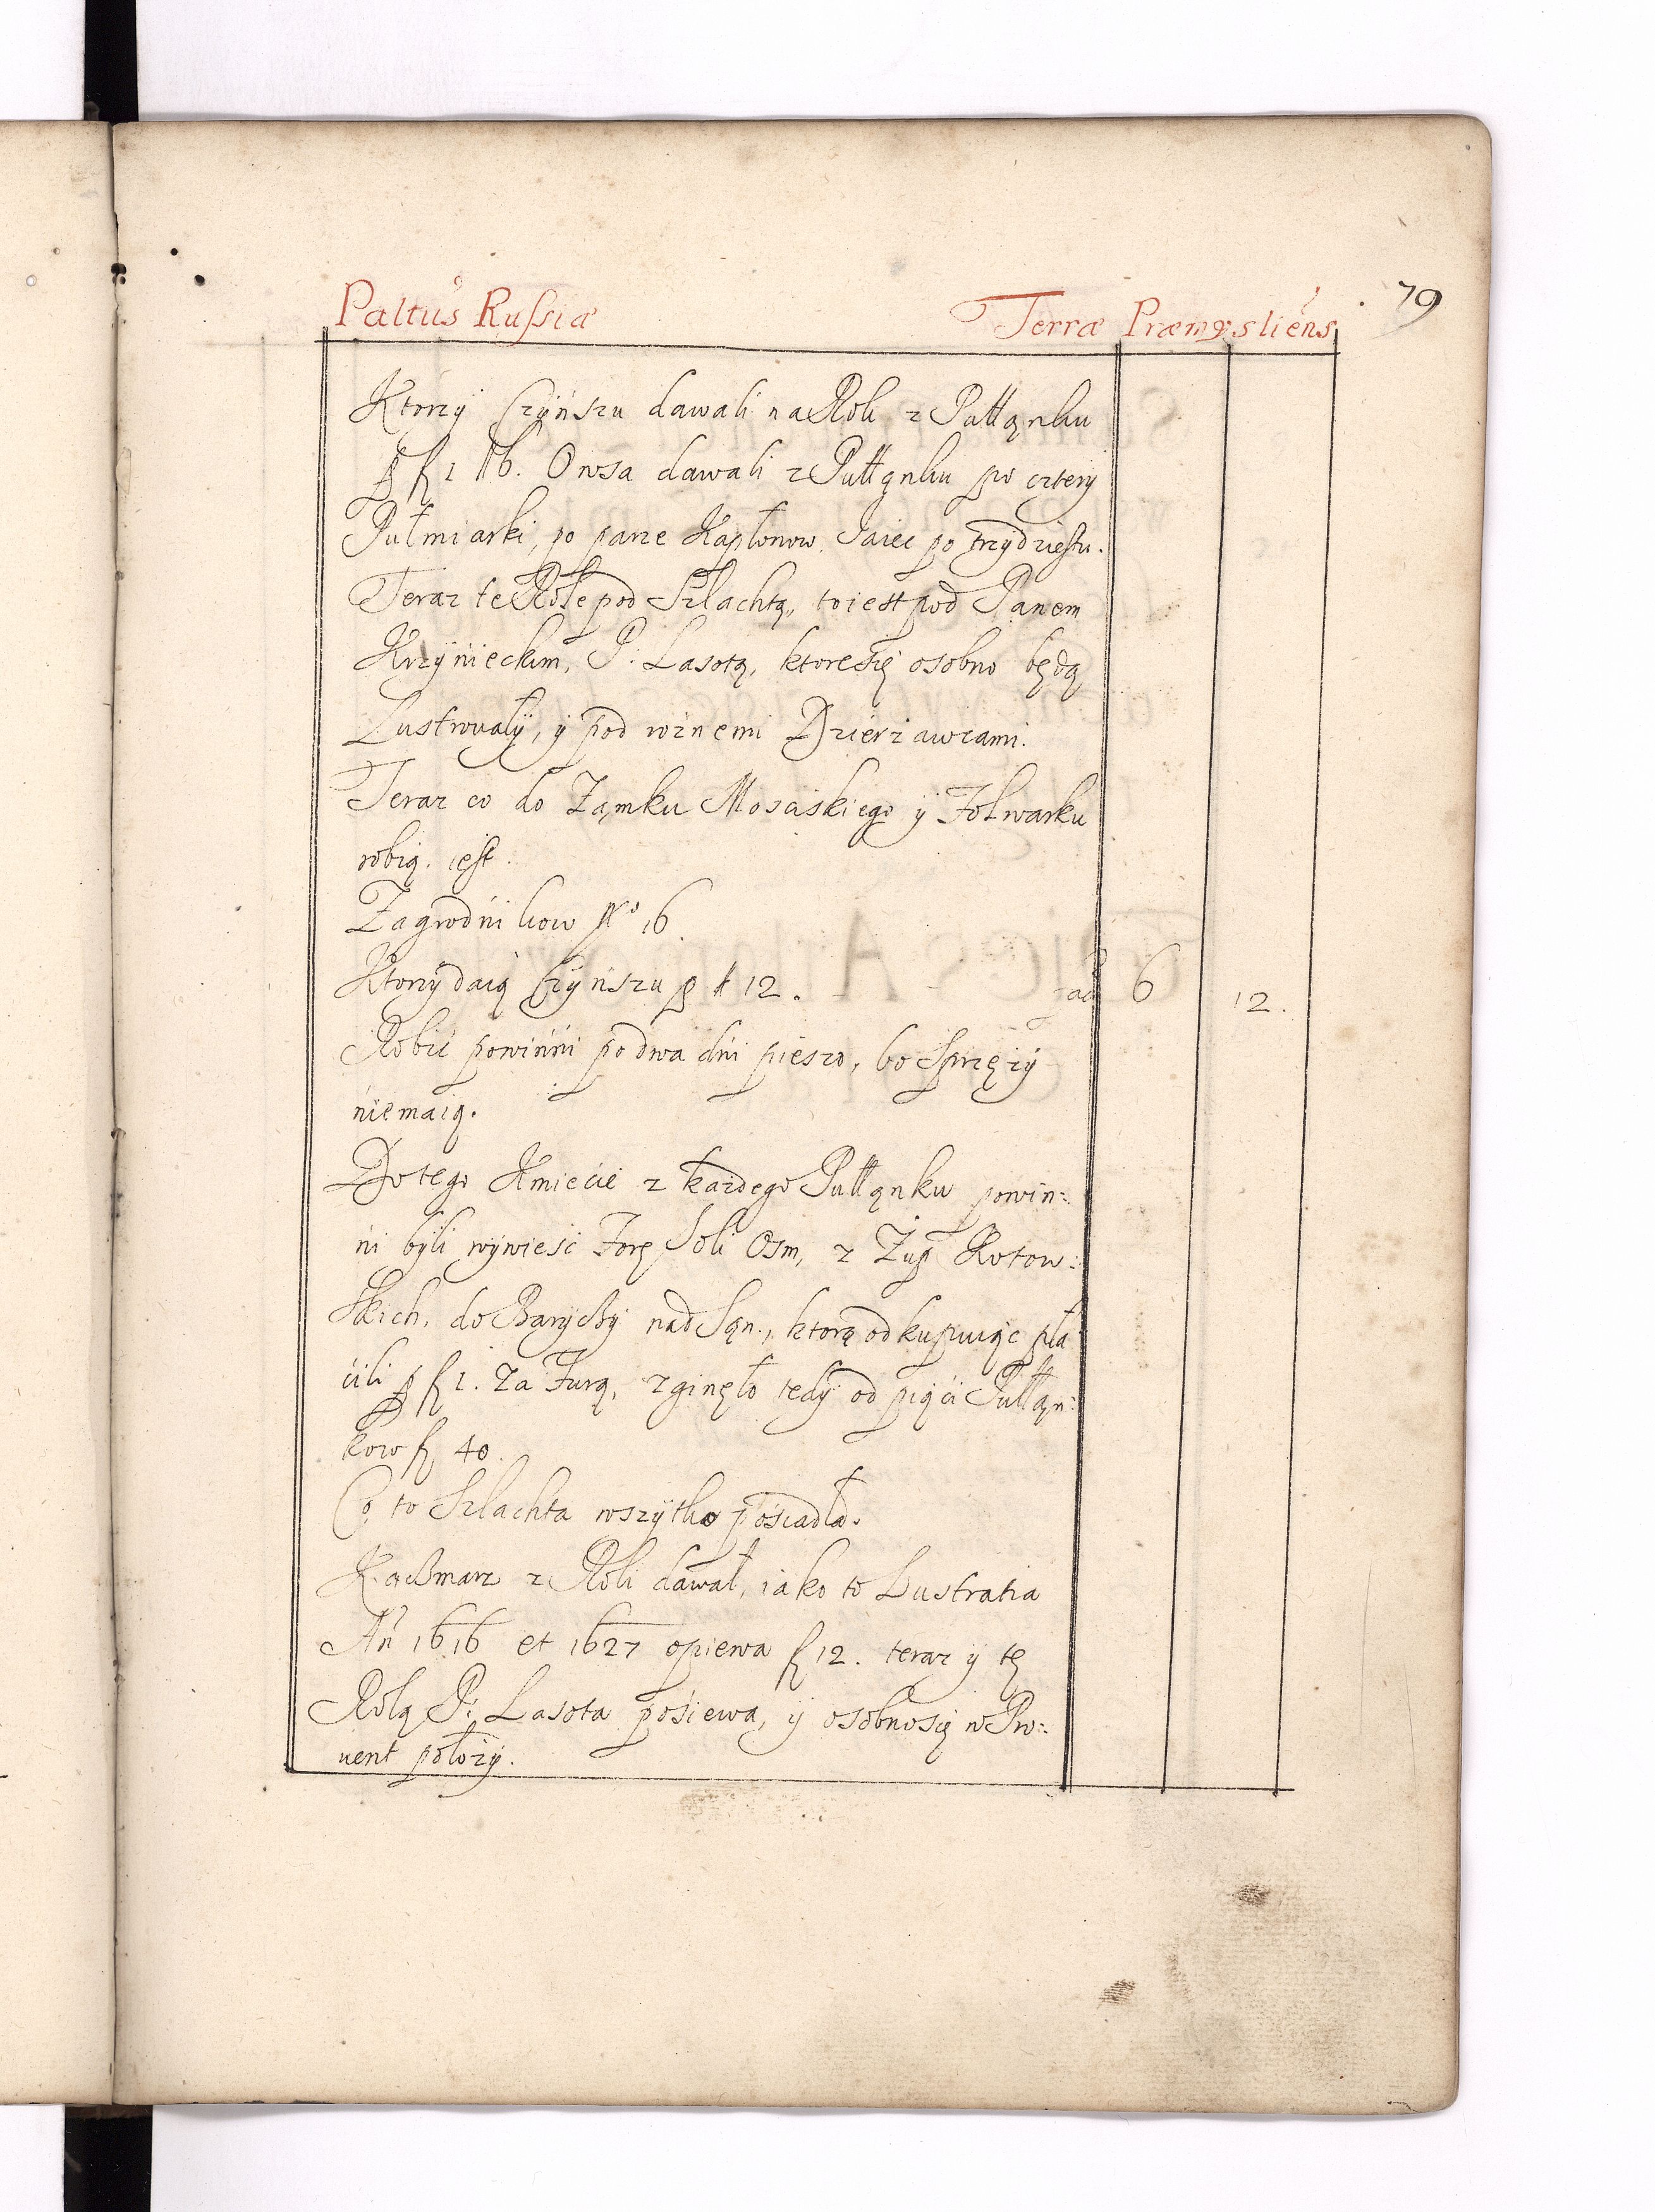 Paltus Russiæ Terræ Præmysliens. 79
Ktorzÿ Czÿnszu dawali na Rok z Pułłąnku
ꝑ fl 1 /16. Owsa dawali z Pułłąnku po czterÿ
Pułmiarki, po parze Kapłonow, Jaiec po trzÿdziestu.
Teraz te Role pod Szlachtą, to iest pod Panem
Krzÿnieckim, P: Lasotą, ktore się osobno będą
Lustrowałÿ, ÿ pod roznemi Dzierzawcami.
Teraz co do Zamku Mosciskiego ÿ Folwarku
robią, iest.
Zagrodnikow No 16
Ktorzÿ daią Czÿnszu ꝑ 12. facit 6 12.
Robić powinni po dwa dni pieszo, bo Sprzęzÿ
nie maią.
Do tego Kmiecie z kazdego Pułłąnku powin:
ni bÿli wÿwiesć Forę Soli Osm, z Zup Kotow:
skich, do Barÿczÿ nad Sąn, ktorą odkupuiąc pła
cili ꝑ fl 1. Za Furą, zginęło tedÿ od pięci Pułłąn:
kow fl 40.
Co to Szlachta wszÿtko posiadła.
Kaczmarz z Roli dawał, iako to Lustratia
An 1616 et 1627 opiewa fl 12. teraz ÿ tę
Rolą P: Lasota posiewa, ÿ osobno się w Pro:
uent położÿ.